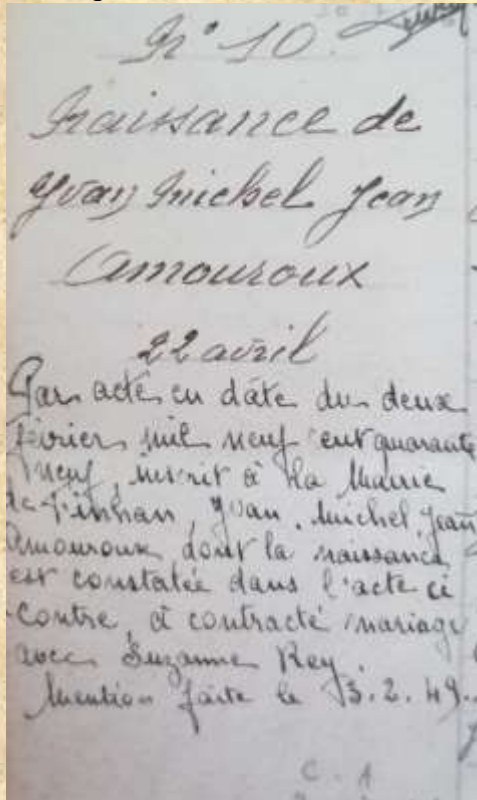 N° 10
Naissance de
Yvan Michel Jean
Amouroux
22 avril
Par acte en date du deux
février mil neuf cent quarante
neuf, inscrit à la Mairie
de Finhan, Yvan, Michel, Jean
Amouroux dont la naissance
est constatée dans l'acte ci
contre, à contracté mariage
avec Suzanne Rey.
Mention faite le 3.2.49.
C. 1